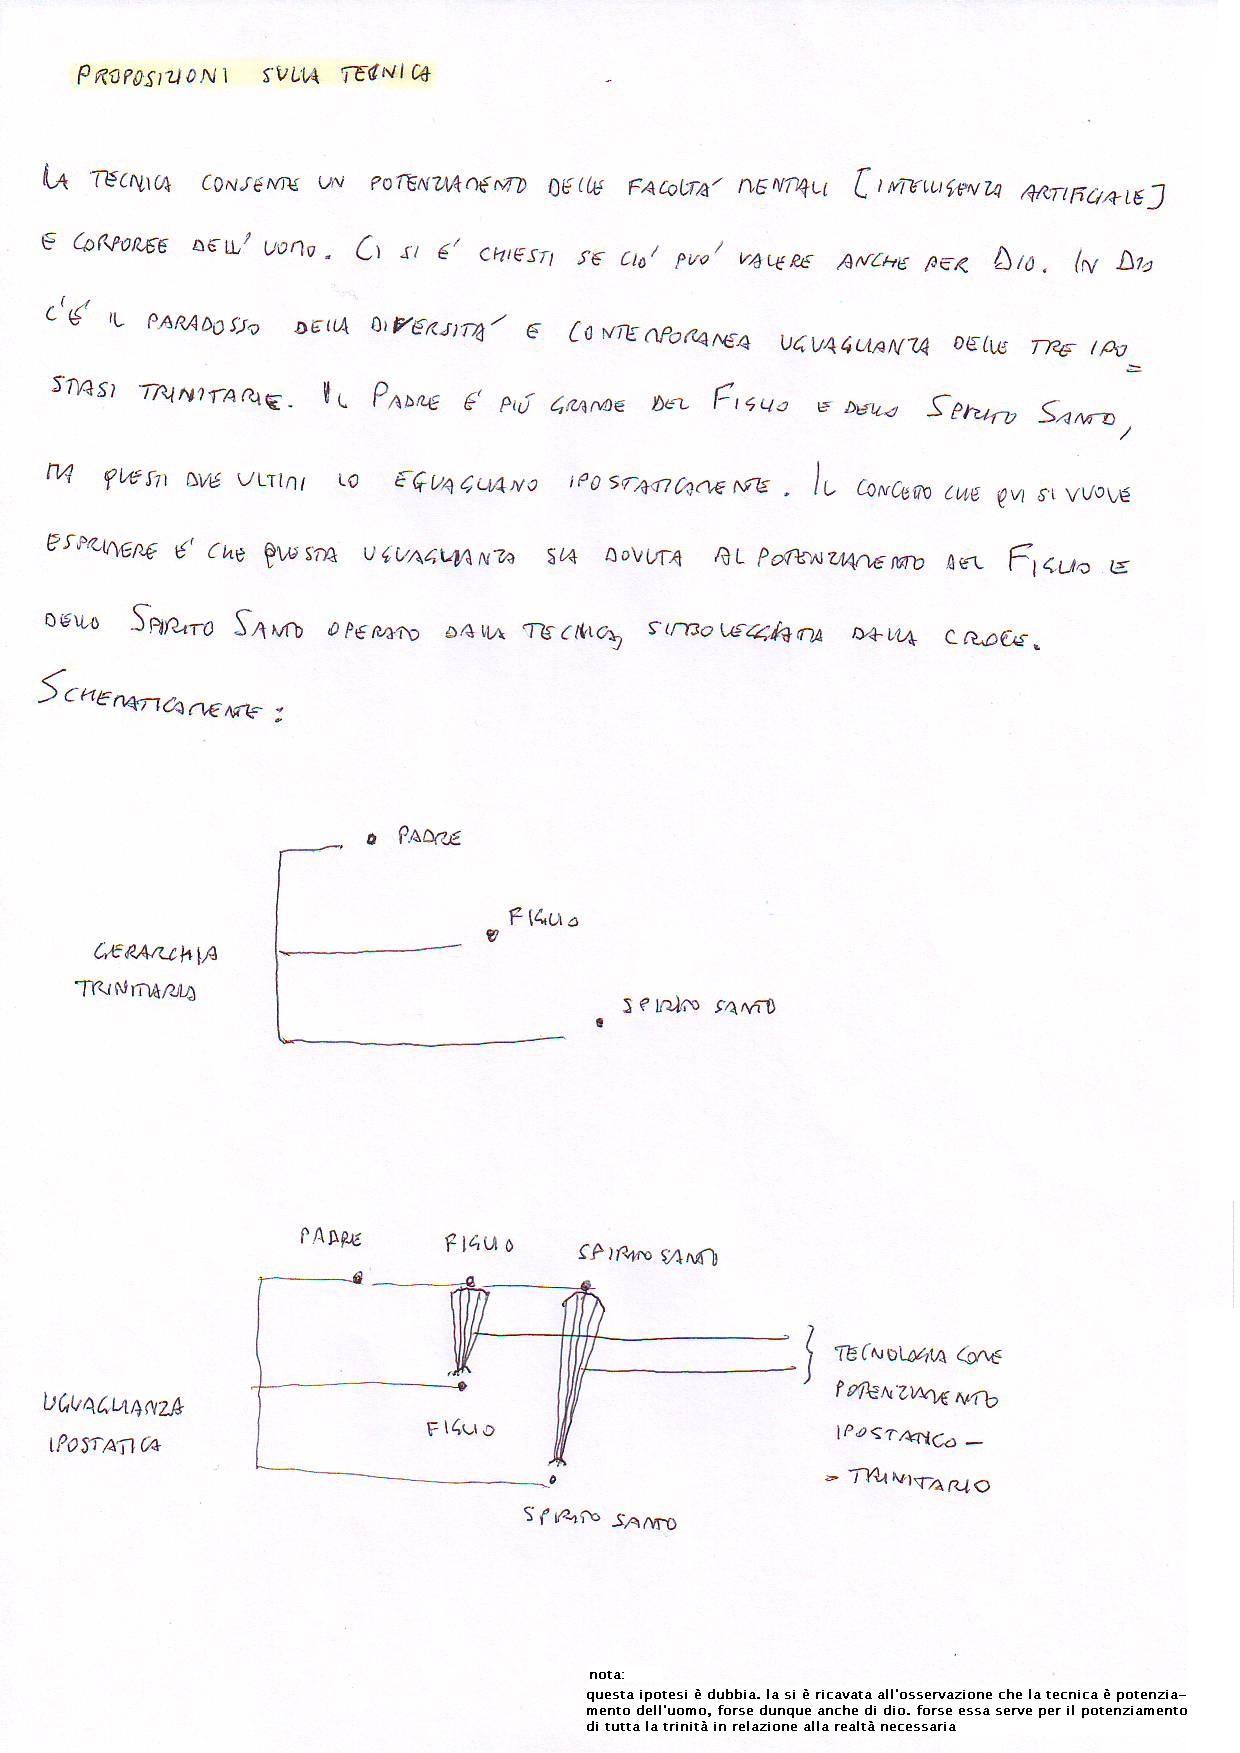 PROPOSIZIONI SULLA TECNICA
LA TECNICA CONSENTE UN POTENZIAMENTO DELLE FACOLTA' MENTALI [INTELLIGENZA ARTIFICIALE]
E CORPOREE DELL'UOMO. CI SI E' CHIESTI SE CIO' PUO' VALERE ANCHE PER DIO. IN DIO
C'E' IL PARADOSSO DELLA DIVERSITA' E CONTEMPORANEA UGUAGLIANZA DELLE TRE IPO=
STASI TRINITARIE. IL PADRE E' PIÚ GRANDE DEL FIGLIO E DELLO SPIRITO SANTO,
MA QUESTI DUE ULTIMI LO EGUAGLIANO IPOSTATICAMENTE. IL CONCETTO CHE QUI SI VUOLE
ESPRIMERE E' CHE QUESTA UGUAGLIANZA SIA DOVUTA AL POTENZIAMENTO DEL FIGLIO E
DELLO SPIRITO SANTO OPERATO DALLA TECNICA, SIMBOLEGGIATA DALLA CROCE.
SCHEMATICAMENTE:
PADRE
FIGLIO
GERARCHIA
TRINITARIA
SPIRITO SANTO
PADRE FIGLIO SPIRITO SANTO
TECNOLOGIA COME
POTENZIAMENTO
IPOSTATICO-
-TRINITARIO
UGUAGLIANZA
IPOSTATICA
FIGLIO
SPIRITO SANTO
nota:
questa ipotesi è dubbia. la si è ricavata all'osservazione che la tecnica è potenzia-
mento dell'uomo, forse dunque anche di dio. forse essa serve per il potenziamento
di tutta la trinità in relazione alla realtà necessaria